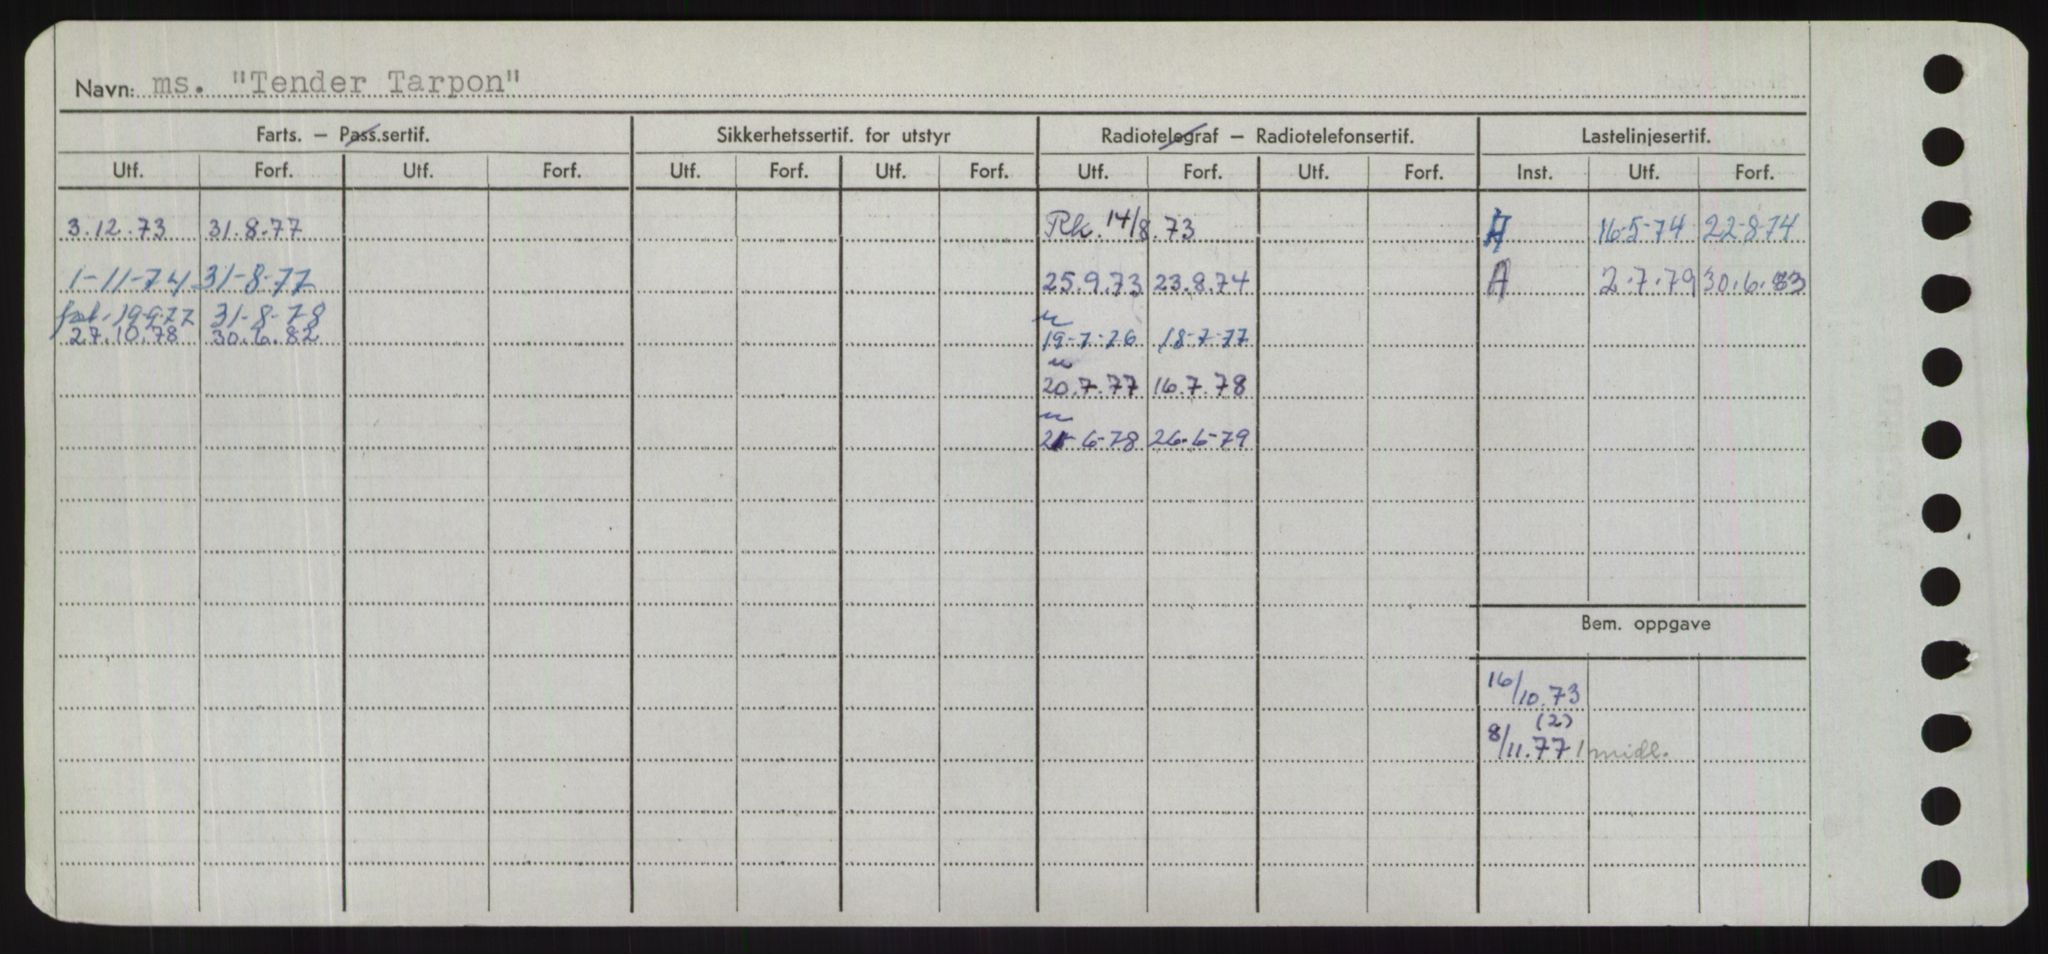 Navn: ms. "Tender Tarpon"
Farts. — Pass.sertif. Sikkerhetssertif. for utstyr Radiotelegraf — Radiotelefonsertif. Lastelinjesertif.
Utf. Forf. Utf. Forf. Utf. Forf. Utf. Forf. Utf. Forf. Utf. Forf. Inst. Utf. Forf.
3.12.73 31.8.77 Rk. 14/8.73 16-5-74 22-8-74
1-11-74 31-8-77 25.9.73 23.8.74 A 2.7.79 30.6.83
19-9-77 31-8-78
27.10.78 30.6.82 19-7-76 18-7-77
20.7.77 16.7.78
6-78 26-6-79
Bem. oppgave
16/10.73
(2)
8/11.77 / midl.